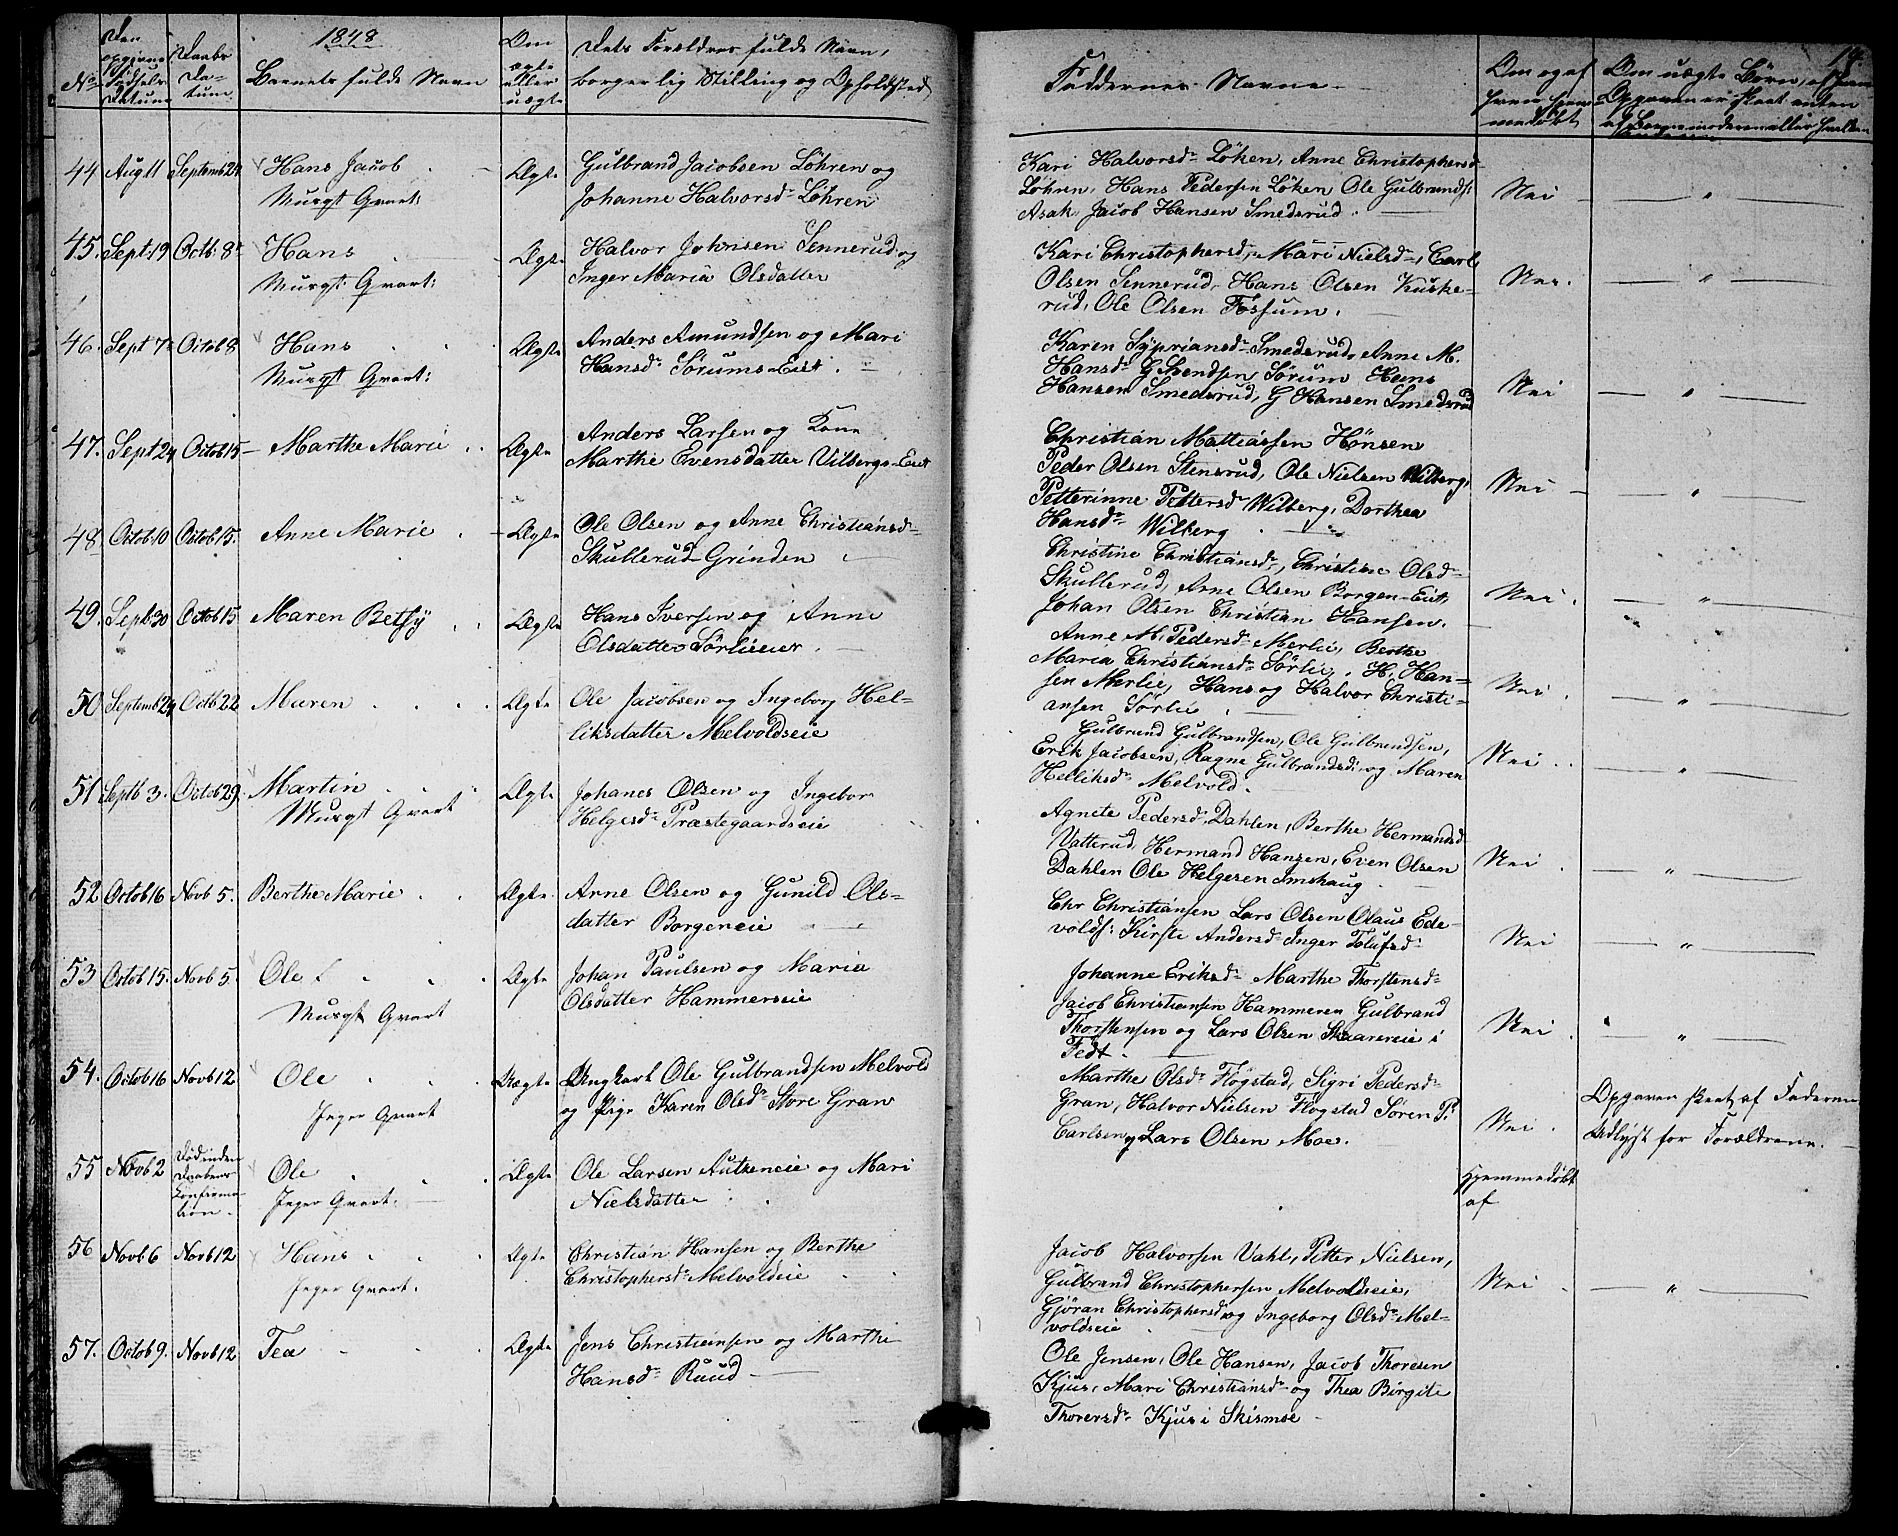 1848
No
Den opgivne Fødsels Datum
Daabs Datum
Barnets fulde Navn
Om ægte eller uægte
Dets Forældres fulde Navn,
borgerlig Stilling og Opholdsted
Faddernes Navne
Om og af hvem hjemmedøbt
Om uægte Børn, af hvem
Opgaven er skeet enten
14.
44 Aug 11 Septemb 24 Hans Jacob Ægte Gulbrand Jacobsen Löhren og
Johanne Halvorsd Löhren
Kari Halvorsd Löken, Anne Christophersd
Löhren, Hans Pedersen Löken Ole Gulbrands:
Asak, Jacob Hansen Smedsrud.
Nei — " —
45. Sept: 19 Octb: 8 Hans Ægte Halvor Johnsen Sennerud og
Inger Maria Olsdatter
Kari Christophersd, Mari Nielsd, Carl
Olsen Sennerud, Hans Olsen Kuske-
rud, Ole Olsen Fossum.
Nei. — " —
46. Sept 7 Octob 8 Hans Ægte Anders Amundsen og Mari
Hansd Sørums-Eiet.
Karen Syprians d Smedsrud, Anne M.
Hansd G Svendsen Sørum Hans
Hansen Smedsrud, G Hansen Smedsrud
Nei — " —
47. Sept 24 Octob 15 — Marthe Marie Ægte Anders Larsen og Kone
Marthe Evensdatter Vilbergs-Eiet
Christian Mathiassen Hönsen
Peder Olsen Stensrud, Ole Nielsen Wilberg,
Petterinne Pettersd Wilberg, Dorthea
Hansd Wilberg
Nei — " —
48. Octob 10 Octob 15. Anne Marie Ægte Ole Olsen og Anne Christiansd
Skullerud-Grinden
Christine Christiansd, Christine Olsd
Skullerud, Arne Olsen Borgen-Eiet,
Johan Olsen Christian Hansen.
Nei. — " —
49. Septb: 30 Octob 15 Maren Betsy Ægte Hans Iversen og Anne
Olsdatter Sörlieeier.
Anne M. Pedersd Merlie, Berthe
Maria Christiansd Sörlie, H. Han-
sen Merlie, Hans og Halvor Christi-
ansen Sörlie
Nei. — " —
50 Septemb 24 Octb 22 Maren Ægte Ole Jacobsen og Ingeborg Hel-
liksdatter Melvoldseie
Gulbrand Gulbrandsen, Ole Gulbrandsen,
Erik Jacobsen, Ragne Gulbrandsd: og Maren
Helliksd Melvold.
Nei. — " —
51 Septb 3. Octob 29. Martin Ægte Johanes Olsen og Ingebor
Helgesd Præstegaardseie
Agnete Pedersd, Dahlen, Berthe Hermansd
Vatterud, Hermand Hansen, Even Olsen
Dahlen Ole Helgesen Imshaug
Nei. — " —
52 Octob 16 Novb 5. Berthe Marie Ægte. Arne Olsen og Gunild Ols-
datter Borgeneie
Chr Christiansen Lars Olsen Olaus Ede-
volds: Kirsti Andersd Inger Tolufsd
Nei — " —
53 Octob 15. Novb 5 Ole Ægte Johan Paulsen og Maria
Olsdatter Hammerseie
Johanne Eriksd Marthe Thorstensd
Jacob Christiansen Hammeren Gulbrand
Thorstensen og Lars Olsen Skaareneie i
Fedt.
Nei. — " —
54. Octob 16 Novb 12 Ole Uægte Ungkarl Ole Gulbrandsen Melvold
og Pige Karen Olsd Store Gran
Jeger Qvart
Marthe Olsd Flögstad, Sigri Pedersd
Gran, Halvor Nielsen Flogstad Sören P.
Carlsen og Lars Olsen Moe.
Nei. Opgaven skeet af Faderen
Udlyst for Forældrene.
55 Novb 2 Död inden Daabens Konfirmation. Ole Ægte Ole Larsen Autkeneie og Mari
Nielsdatter
Jeger Qvart:
Hjemmedøbt
af
56 Novb 6 Novb 12 Hans Ægte Christian Hansen og Berthe
Christophersd Melvoldeie
Jeger Qvart.
Jacob Halvorsen Vahl, Petter Nielsen,
Gulbrand Christophersen Melvoldseie,
Gjöran Christophersd og Ingeborg Olsd Mel-
voldseie
Nei. — " —
57. Octob 9. Novb 12 Tea Ægte Jens Christiansen og Marthe
Hansd Ruud
Ole Jensen, Ole Hansen, Jacob Thoresen
Kjus, Mari Christiansd og Thea Birgite
Thorersd Kjus i Skismoe